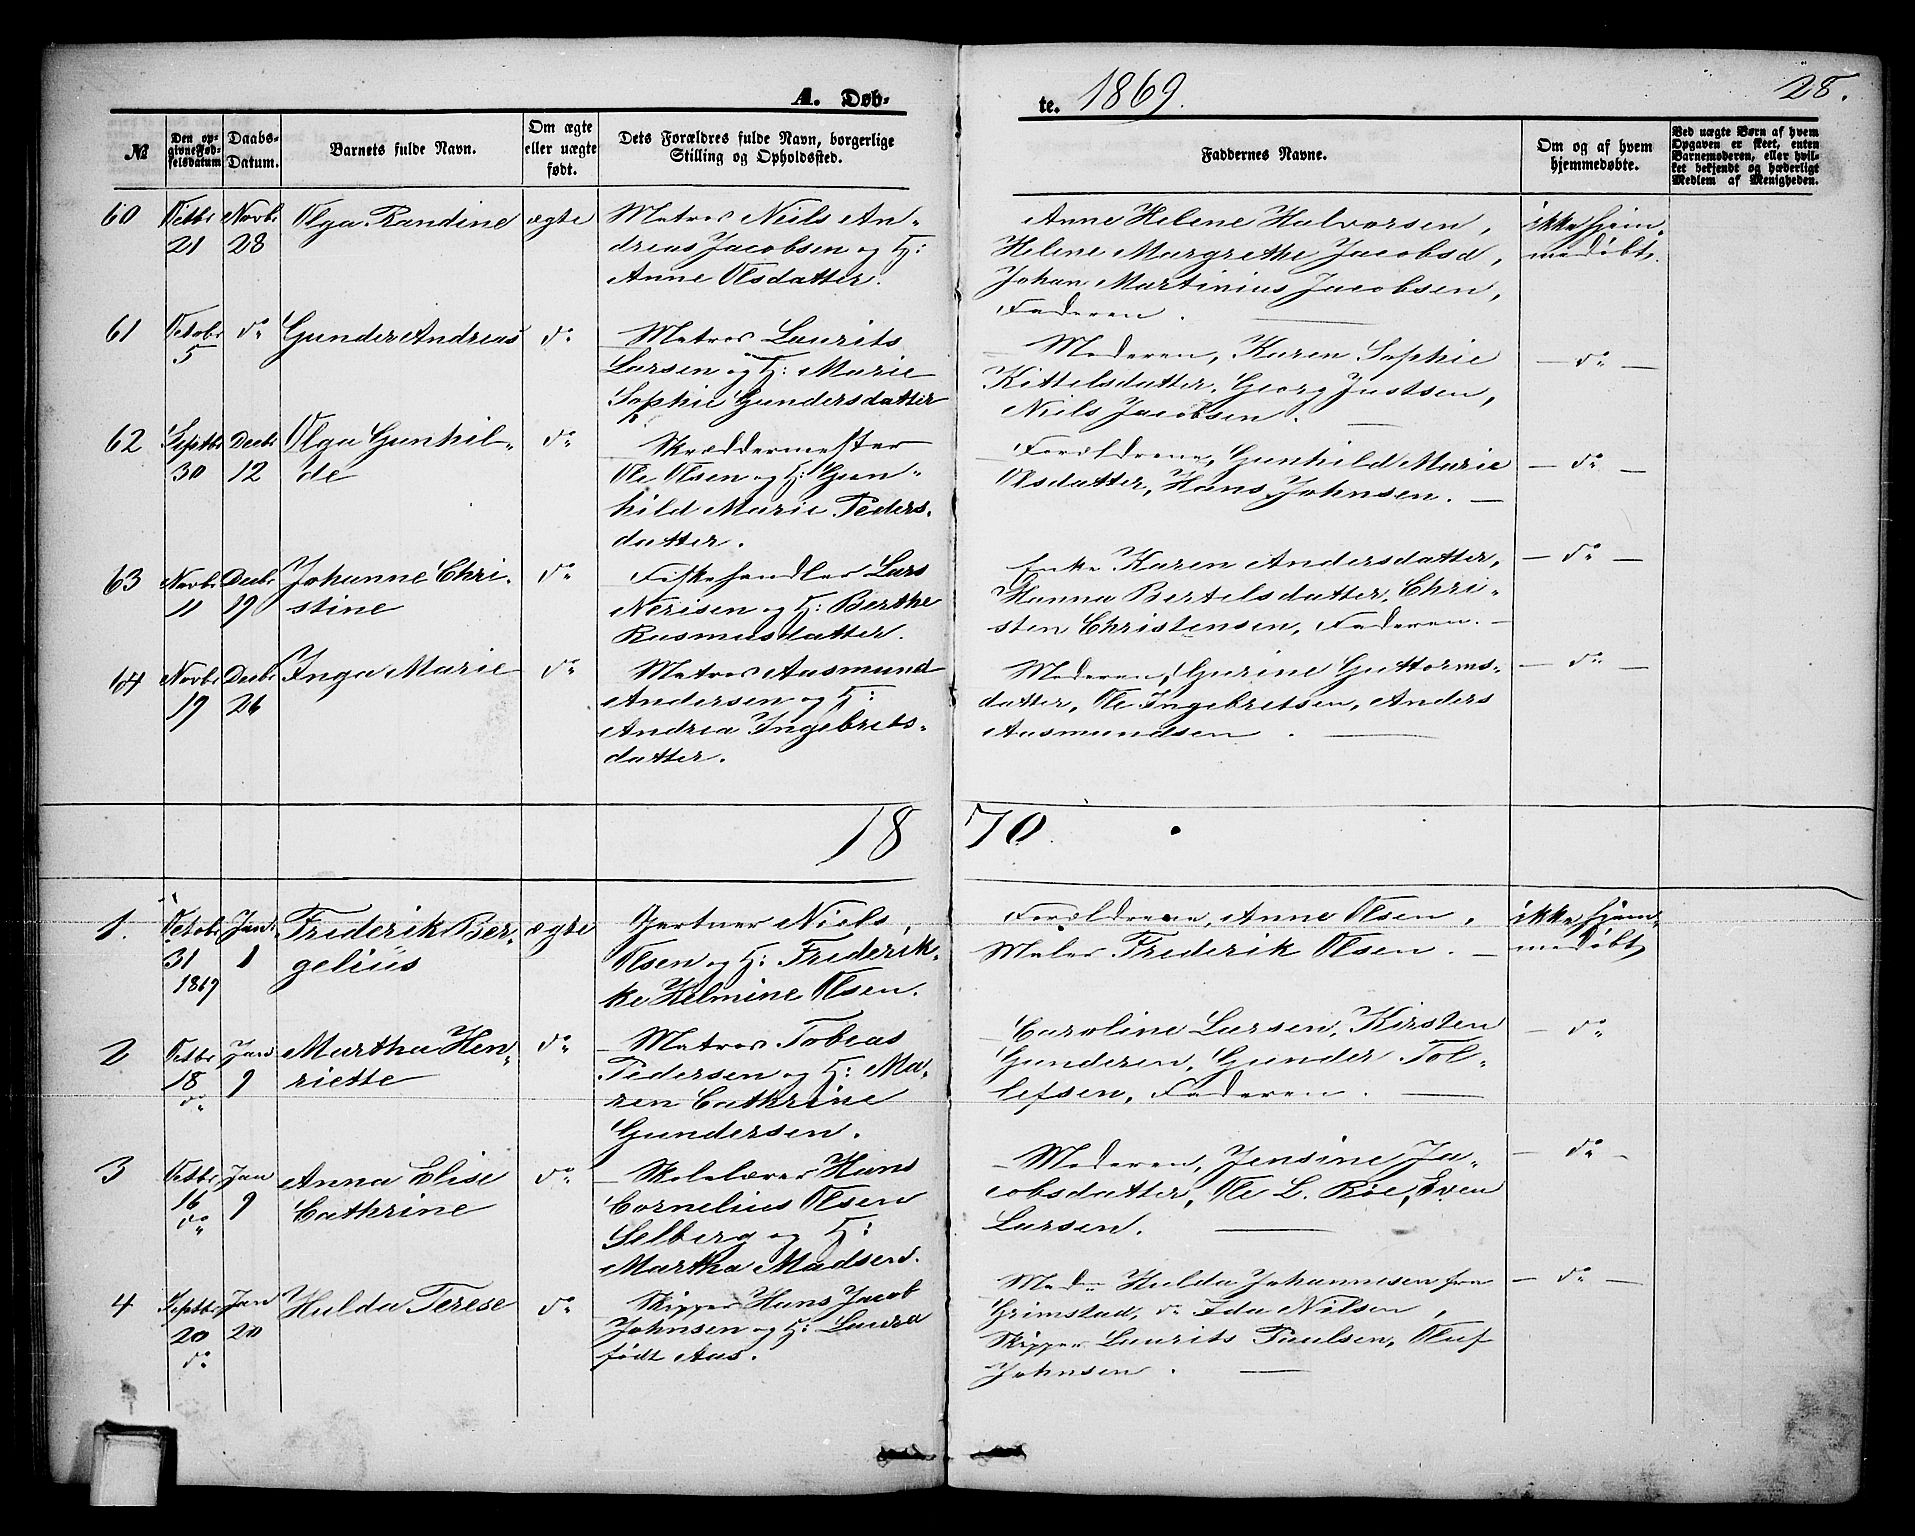 A. Døb-
te. 1869.
28.
№
Den op-
givne Fød-
selsdatum
Daabs-
Datum.
Barnets fulde Navn.
Om ægte
eller uægte
født.
Dets Forældres fulde Navn, borgerlige
Stilling og Opholdssted.
Faddernes Navne.
Om og af hvem
hjemmedøbte.
Ved uægte Børn af hvem
Opgaven er skeet, enten
Barnemoderen, eller hvil-
ket bekjendt og hæderligt
Medlem af Menigheden.
60
Octbr
21
Novbr
28
Olga Randine
ægte
Matros Niels An-
dreas Jacobsen og H:
Anne Olsdatter.
Anne Helene Halvorsen,
Helene Margrethe Jacobsd,
Johan Martinius Jacobsen,
Faderen.
ikke hjem-
medøbt.
61
Octobr
5
do
Gunder Andreas
do
Matros Laurits
Larsen og H: Marie
Sophie Gundersdatter
Moderen, Karen Sophie
Kittelsdatter, Georg Justsen,
Niels Jacobsen.
— do —
62
Septbr
30
Decbr
12
Olga Gunhil-
de
do
Skræddermester
Ole Olsen og H: Gun-
hild Marie Peders-
datter.
Forældrene, Gunhild Marie
Olsdatter, Hans Johnsen. —
— do —
63
Novbr
11
Decbr
19
Johanne Chri-
stine
do
Fiskehandler Lars
Nerisen og H: Berthe
Rasmusdatter.
Enke Karen Andersdatter,
Hanna Bertelsdatter, Chri-
sten Christensen, Faderen. —
— do —
64
Novbr
19
Decbr
26
Inga Marie
do
Matros Aasmund
Andersen og H:
Andrea Ingebrets-
datter.
Moderen, Gurine Guttorms-
datter, Ole Ingebretsen, Anders
Aasmundsen.
— do —
1870.
1.
Octobr
31
1869
Jan
1
Frederik Ber-
gelius
ægte
Gartner Niels
Olsen og H: Frederik-
ke Helmine Olsen.
Forældrene, Anne Olsen,
Maler Frederik Olsen. —
ikke hjem-
medøbt
2
Octbr
18
do
Jan
9
Martha Hen-
riette
do
Matros Tobias
Pedersen og H: Ma-
ren Cathrine
Gundersen.
Caroline Larsen, Kirsten
Gunderen, Gunder Tol-
lefsen, Faderen.
— do
3
Octbr
16
do
Jan
9
Anna Elise
Cathrine
do
Skolelærer Hans
Cornelius Olsen
Selberg og H:
Martha Madsen.
Moderen, Jensine Ja-
cobsdatter, Ole L. Röe, Even
Larsen.
— do —
4
Septbr
20
do
Jan
20
Hulda Terese
do
Skipper Hans Jacob
Johnsen og H: Laura
født Aas.
Mad. Hulda Johannesen fra
Grimstad, do Ida Nilsen,
Skipper Laurits Paulsen, Oluf
Johnsen.
— do —